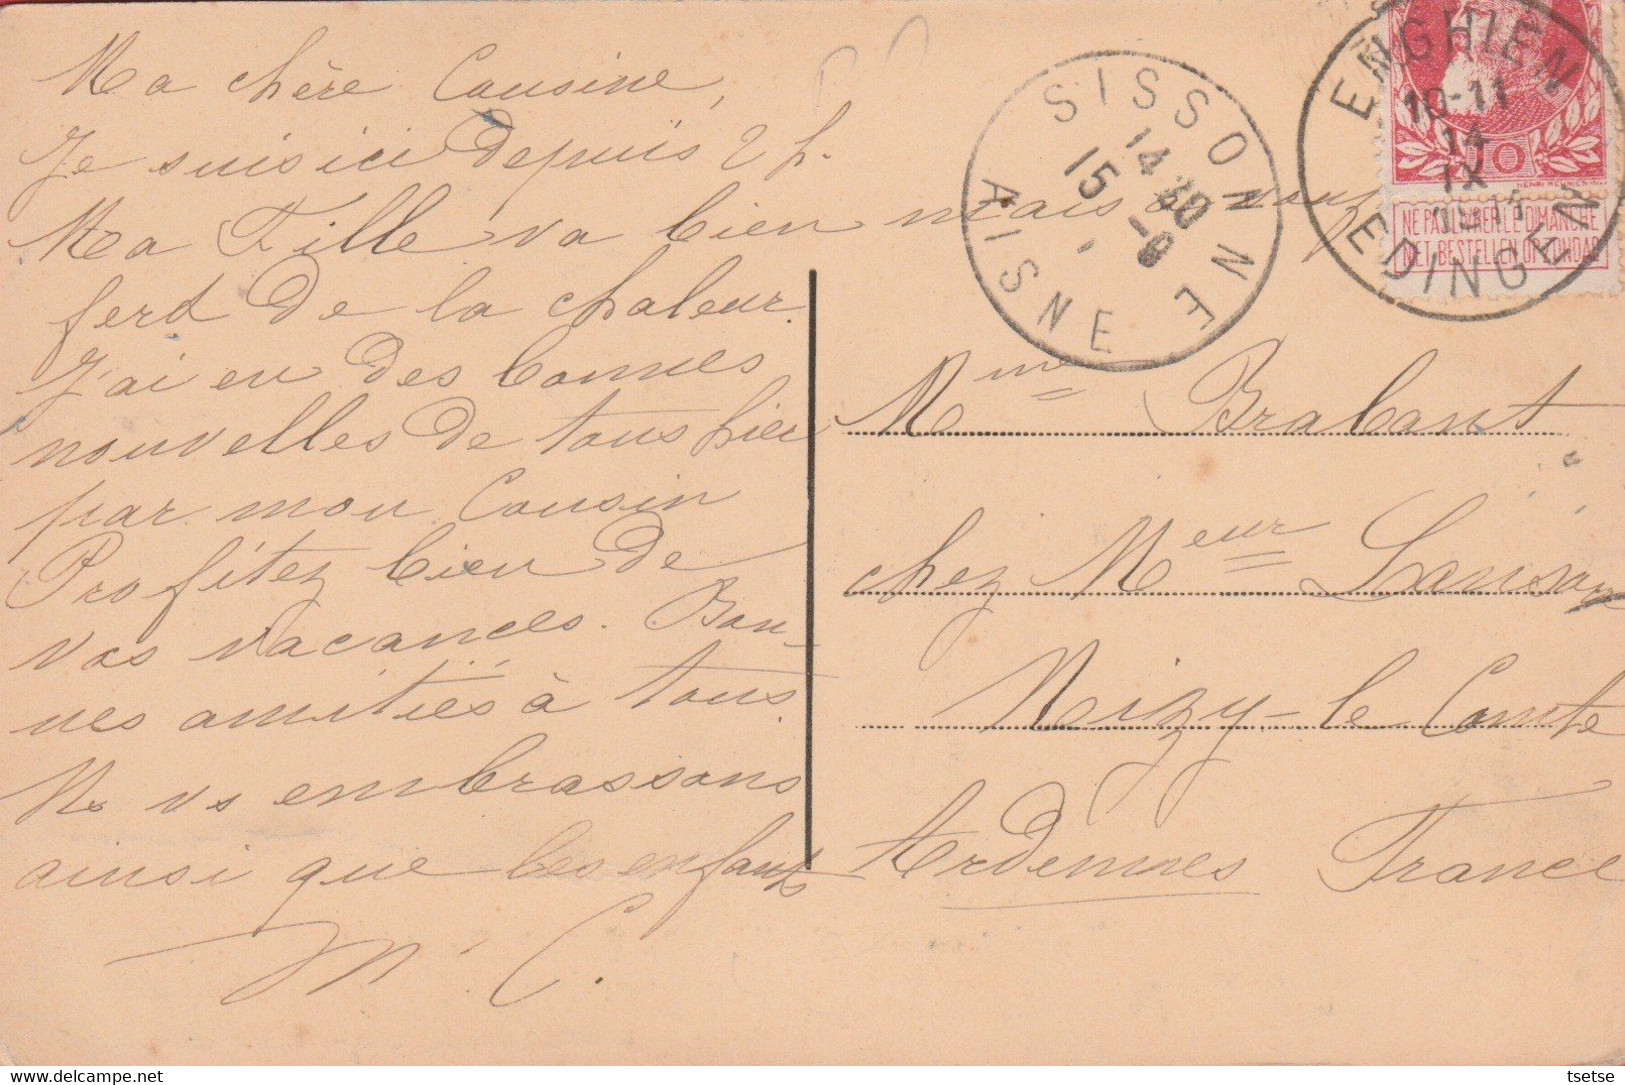 Ma chère Cousine,
Je suis ici depuis 2 h.
Ma Fille va bien mais nous
perd de la chaleur.
J'ai eu des bonnes
nouvelles de tous hier
par mon Cousin
Profitez bien de
vos vacances. Bon-
nes amitiés à tous.
Ns vs embrassons
ainsi que les enfants
M. C.
SISSONNE
14 40
15 -9
AISNE
ENGHIEN
10-11
14
IX
EDINGEN
10
NE PAS LIVRER LE DIMANCHE
NIET BESTELLEN OP ZONDAG
Mme Brabant
chez Meur
Nizy-le Comte
Ardennes France
tsetse